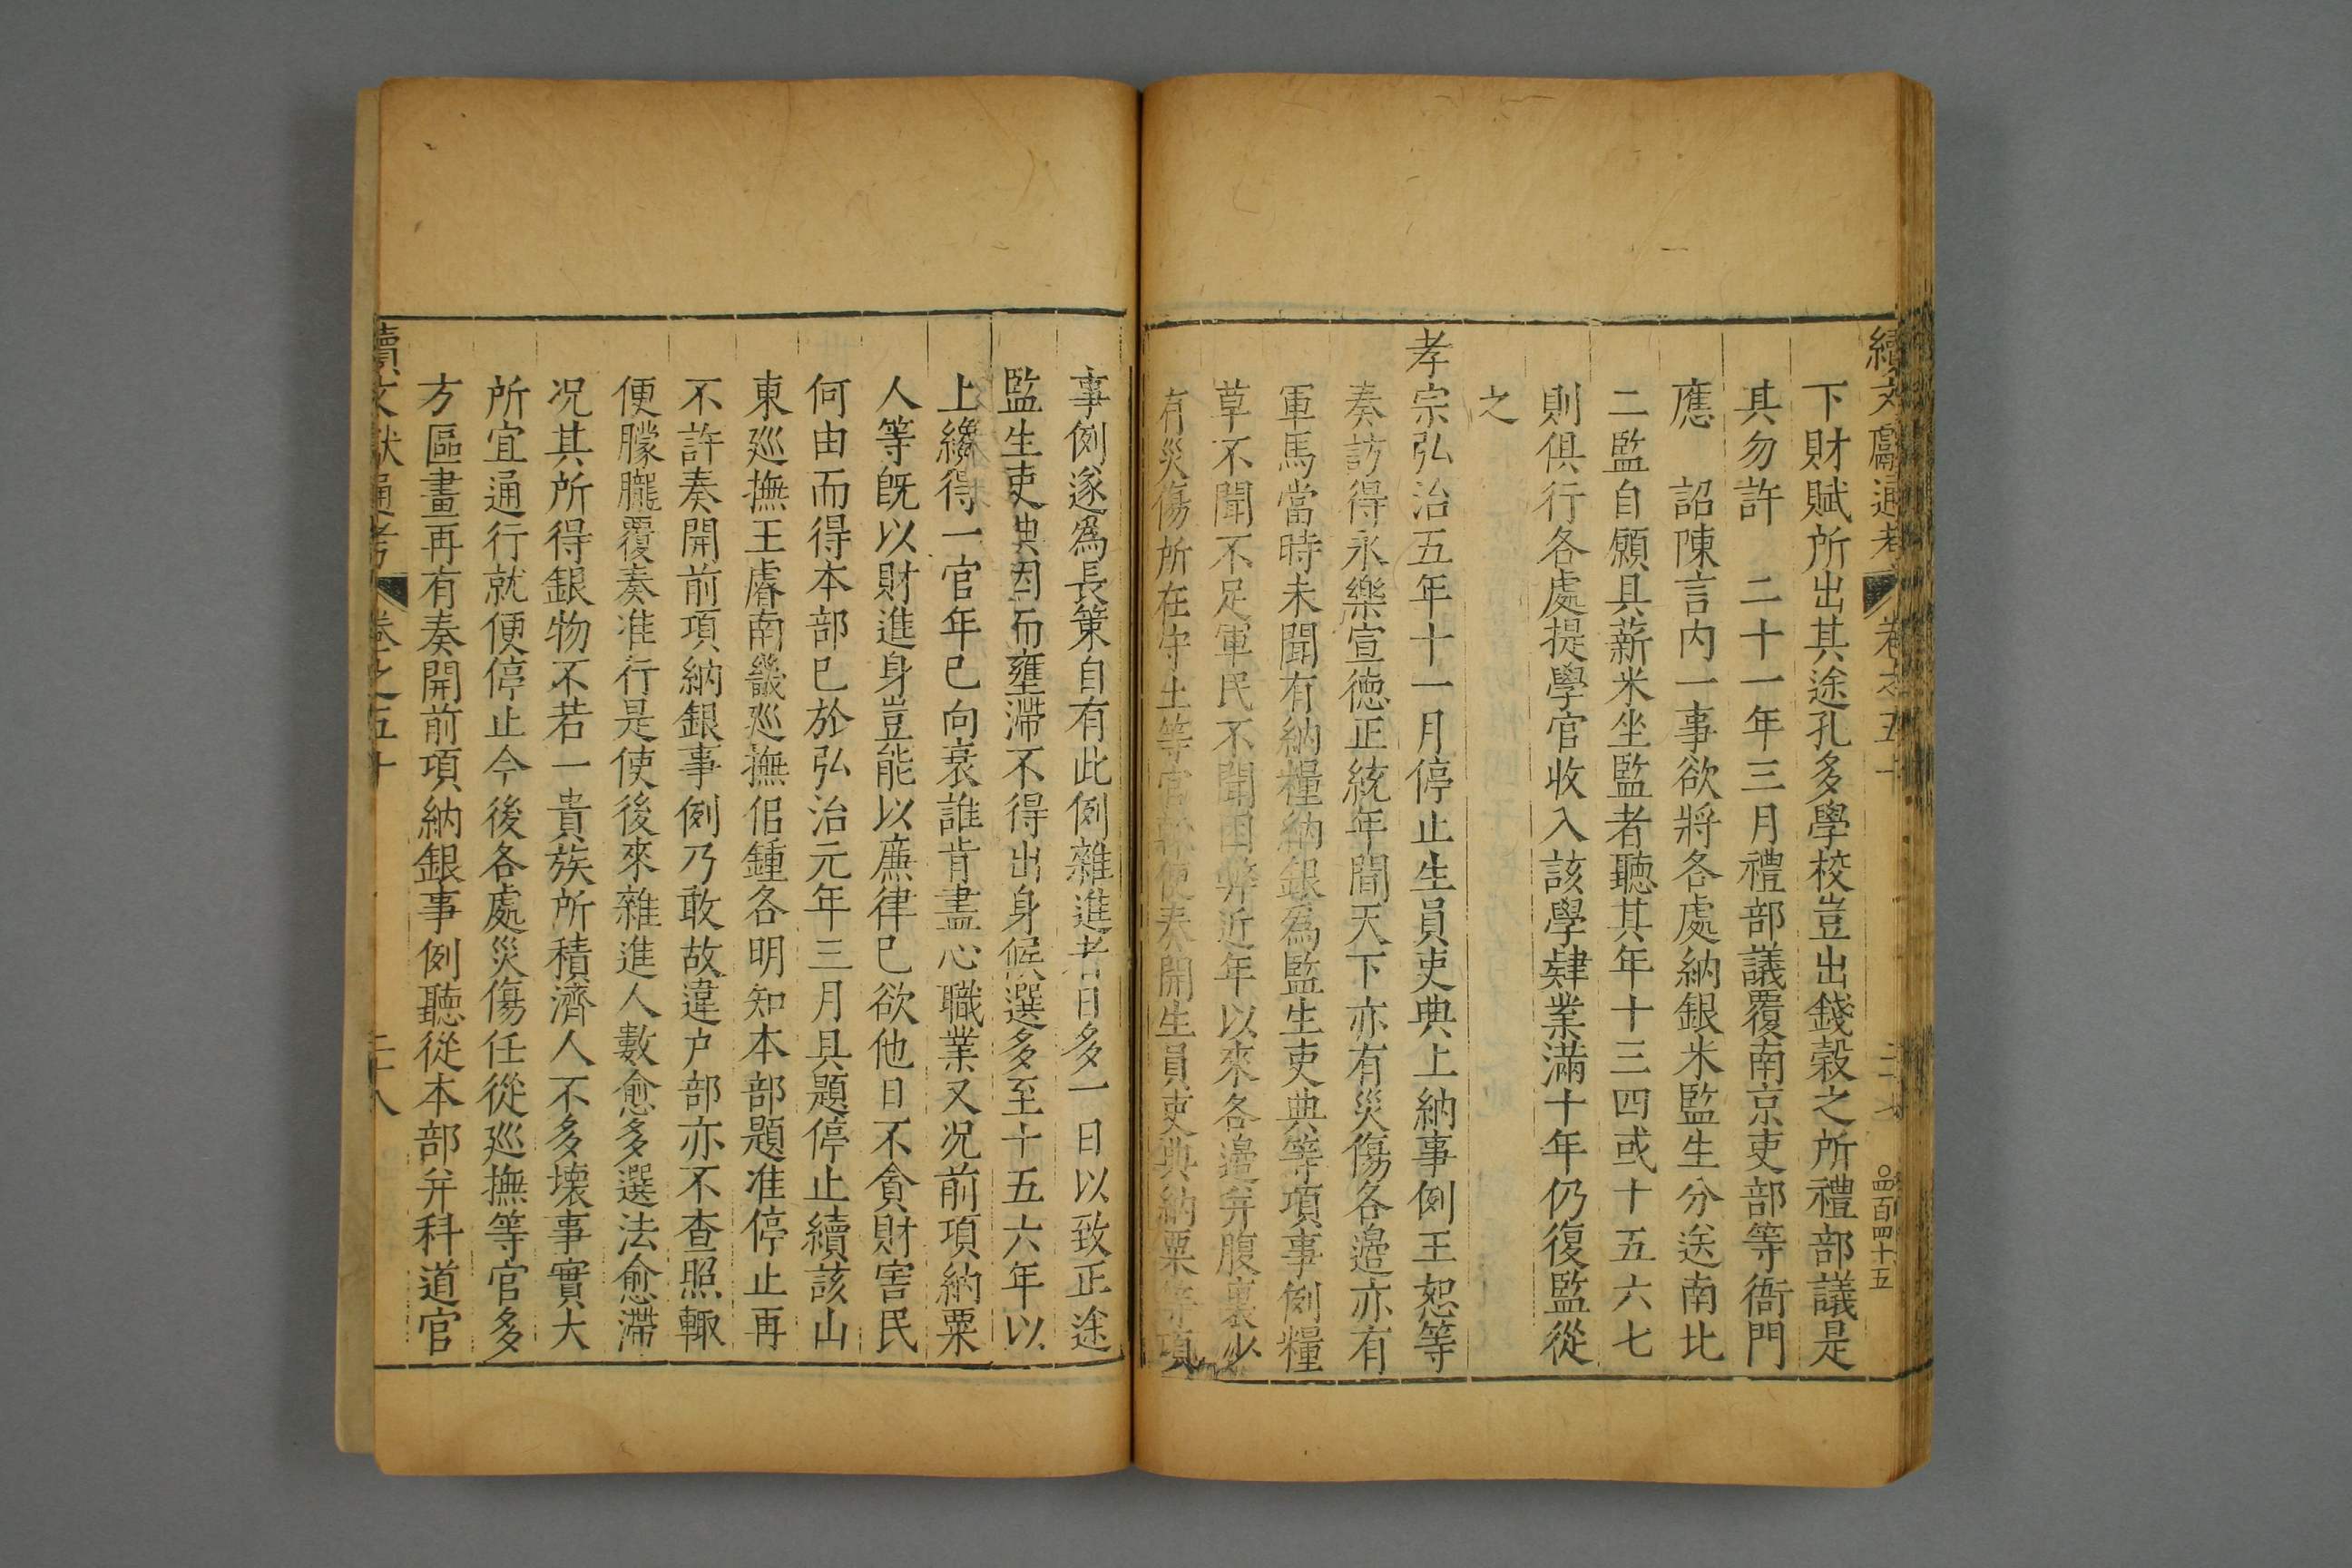 續文獻通考 卷之五十 二十七 〇四百四十五
下財賦所出其途孔多學校豈出錢穀之所禮部議是
其勿許 二十一年三月禮部議覆南京吏部等衙門
應 詔陳言内一事欲將各處納銀米監生分送南北
二監自願具薪米坐監者聽其年十三四或十五六七
則俱行各處提學官收入該學肄業滿十年仍復監從
之
孝宗弘治五年十一月停止生員吏典上納事例王恕等
奏訪得永樂宣德正統年間天下亦有災傷各邊亦有
軍馬當時未聞有納糧納銀為監生吏典等項事例糧
草不聞不足軍民不聞困弊近年以來各邊并腹裏少
有災傷所在守土等官輒便奏開生員吏典納粟等項
事例遂為長策自有此例雜進者日多一日以致正途
監生吏典因而壅滯不得出身候選多至十五六年以
上纔得一官年已向衰誰肯盡心職業又况前項納粟
人等既以財進身豈能以廉律已欲他日不貪財害民
何由而得本部已於弘治元年三月具題停止續該山
東廵撫王㢚南畿廵撫佀鍾各明知本部題准停止再
不許奏開前項納銀事例乃敢故違户部亦不查照輙
便朦朧覆奏准行是使後來雜進人數愈多選法愈滯
况其所得銀物不若一貴族所積濟人不多壞事實大
所宜通行就便停止今後各處災傷任從廵撫等官多
方區畫再有奏開前項納銀事例聽從本部并科道官
續文獻通考 卷之五十 二十八